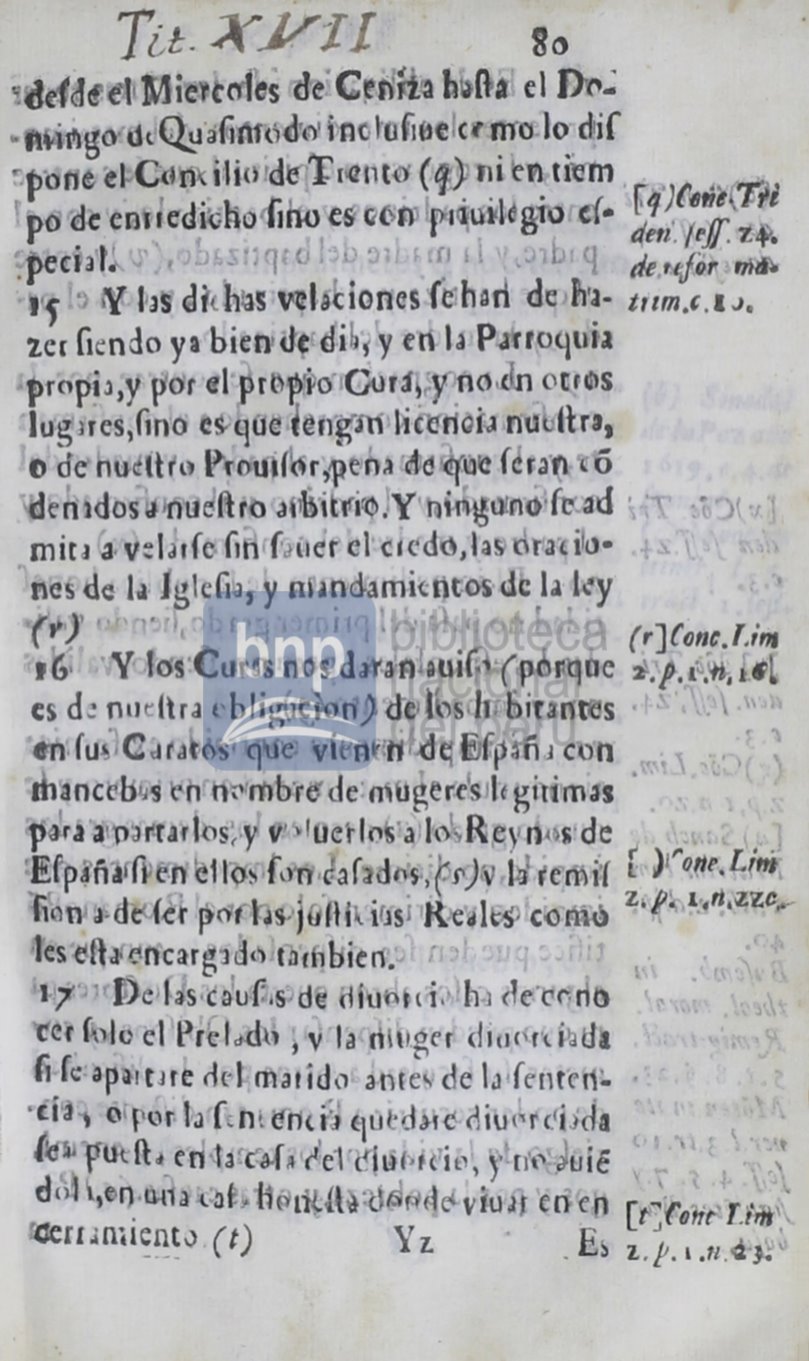 Tit. XVII 80
desde el Miercoles de Ceniza hasta el Do-
mingo de Quasimodo inclusiue como lo dis
pone el Concilio de Trento (q) ni en tiem
po de entredicho sino es con priuilegio es-
pecial.
15 Y las dichas velaciones se han de ha-
zer siendo ya bien de dia, y en la Parroquia
propia, y por el propio Cura, y no en otros
lugares, sino es que tengan licencia nuestra,
o de nuestro Prouisor, pena de que seran cõ
denados a nuestro arbitrio. Y ninguno se ad
mita a velarse sin sauer el credo, las oracio-
nes de la Iglesia, y mandamientos de la ley
(r)
16 Y los Curas nos daran auiso (porque
es de nuestra obligacion) de los habitantes
en sus Curatos que vienen de España con
mancebas en nombre de mugeres legitimas
para apartarlos, y voluerlos a los Reynos de
España si en ellos son casados, (s) y la remis
sion a de ser por las justicias Reales como
les esta encargado tambien.
17 De las causas de diuorcio ha de cono
cer solo el Prelado, y la muger diuorciada
si se apartare del marido antes de la senten-
cia, o por la sentencia quedare diuorciada
sea puesta en la casa del diuorcio, y no auiẽ
dola, en una casa honesta donde viuar en en
cerramiento (t) Y2 Es
[q) Conc. Tri
den. sess. 24.
de refor ma-
trim. c. 10.
(r] Conc. Lim
2. p. 1. n. 16.
[ ) Conc. Lim
2. p. 1. n. 220.
[t] Conc Lim
2. p. 1. n. 23.
bnp biblioteca
nacional
del perú